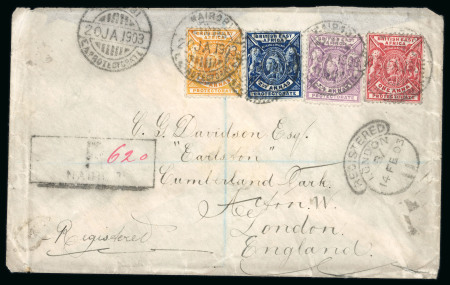 NAIROBI
20 JA 1903
NAIROBI
JA 1903
BRITISH EAST AFRICA
PROTECTORATE
BRITISH EAST AFRICA
PROTECTORATE
BRITISH EAST AFRICA
PROTECTORATE
BRITISH EAST AFRICA
PROTECTORATE
620
C. G. Davidson Esq.
"Earlston"
Cumberland Park.
Acton W.
London.
England.
Registered
REGISTERED
LONDON
14 FE 03